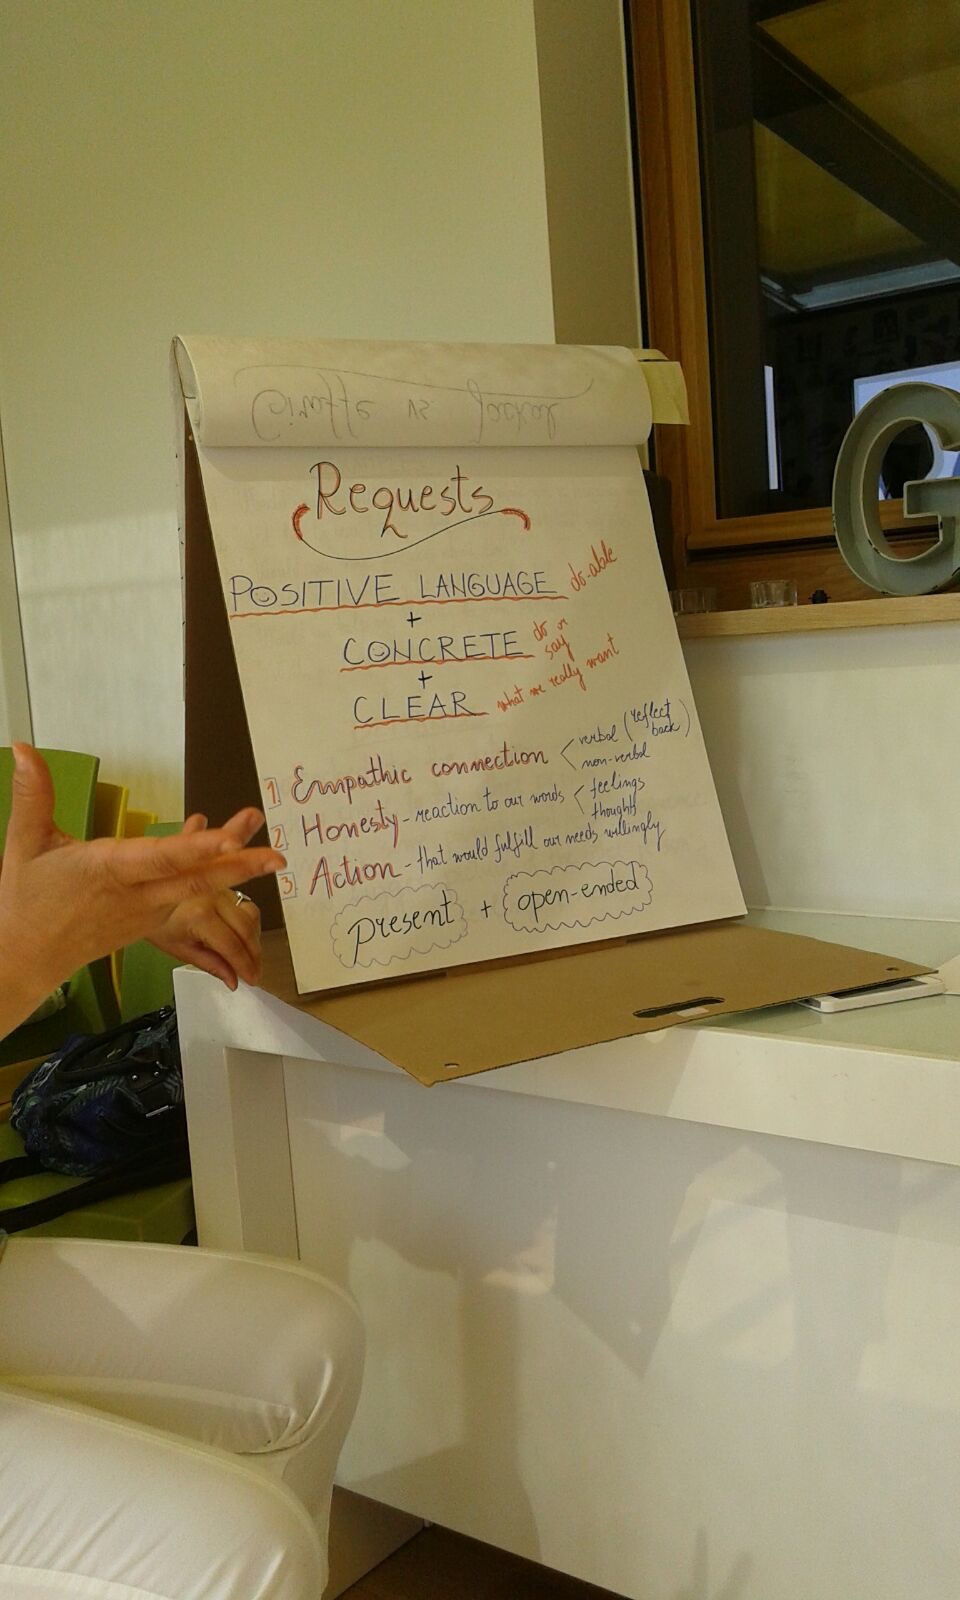 Giraffe vs Jackal
Requests
POSITIVE LANGUAGE do-able
+
CONCRETE do or say
+
CLEAR what we really want
1 Empathic connection < verbal (reflect back)
non-verbal
2 Honesty - reaction to our words < feelings
thoughts
3 Action - that would fulfill our needs willingly
present + open-ended
G